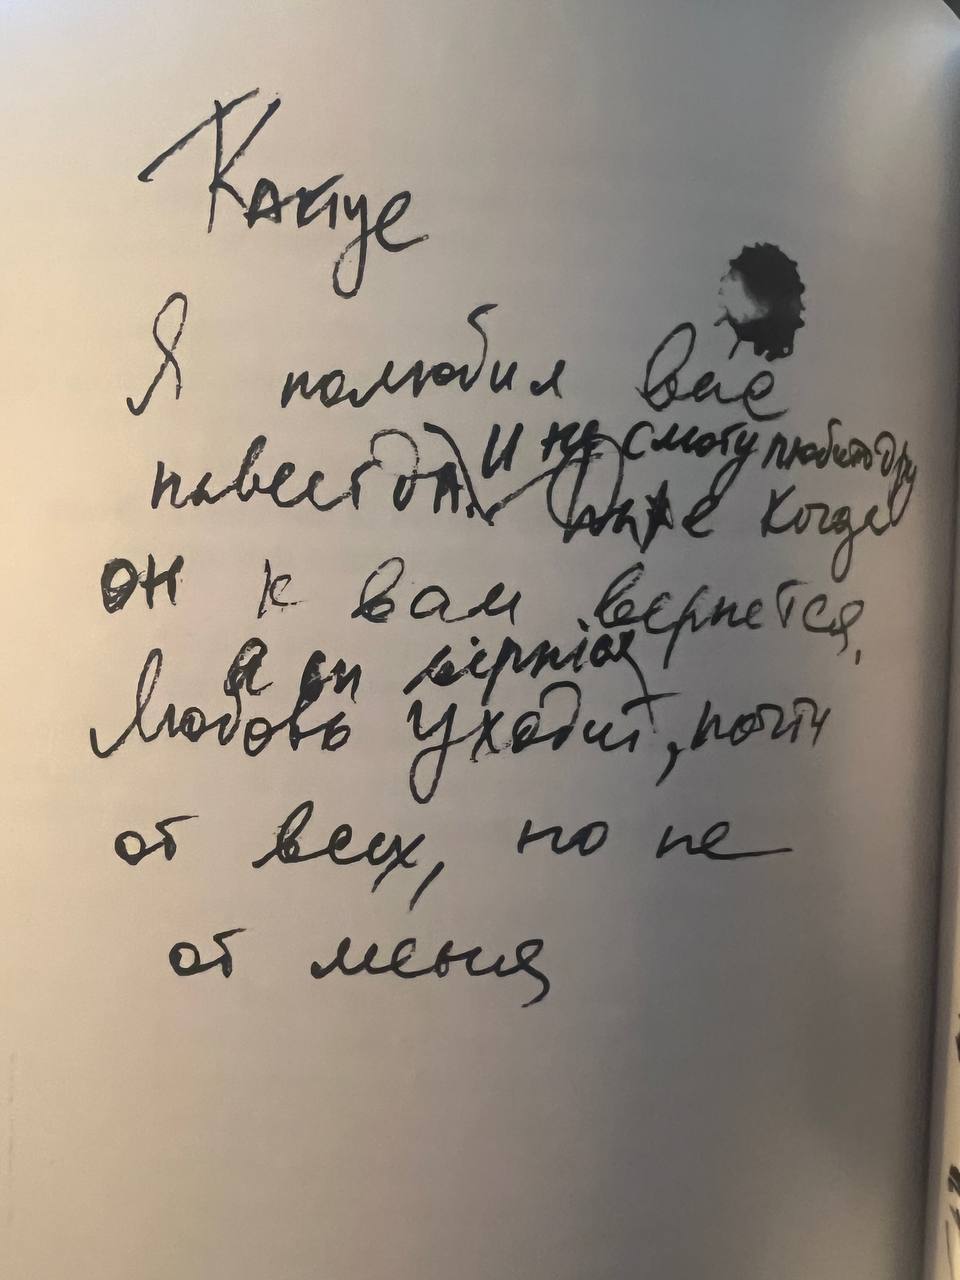 Кактус
Я полюбил вас
навсегда. И не смогу любить дру
Даже когда
он к вам вернется,
а он вернется
Любовь уходит, почти
от всех, но не
от меня